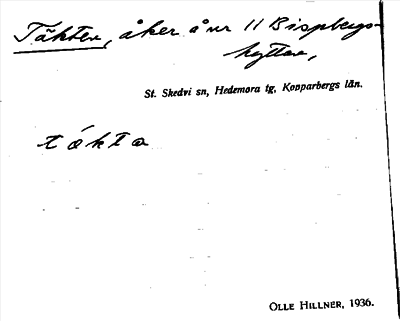 Täkten, åker å nr 11 Bispbergs-
hyttan,
St. Skedvi sn, Hedemora tg, Kopparbergs län.
tákta
OLLE HILLNER, 1936.